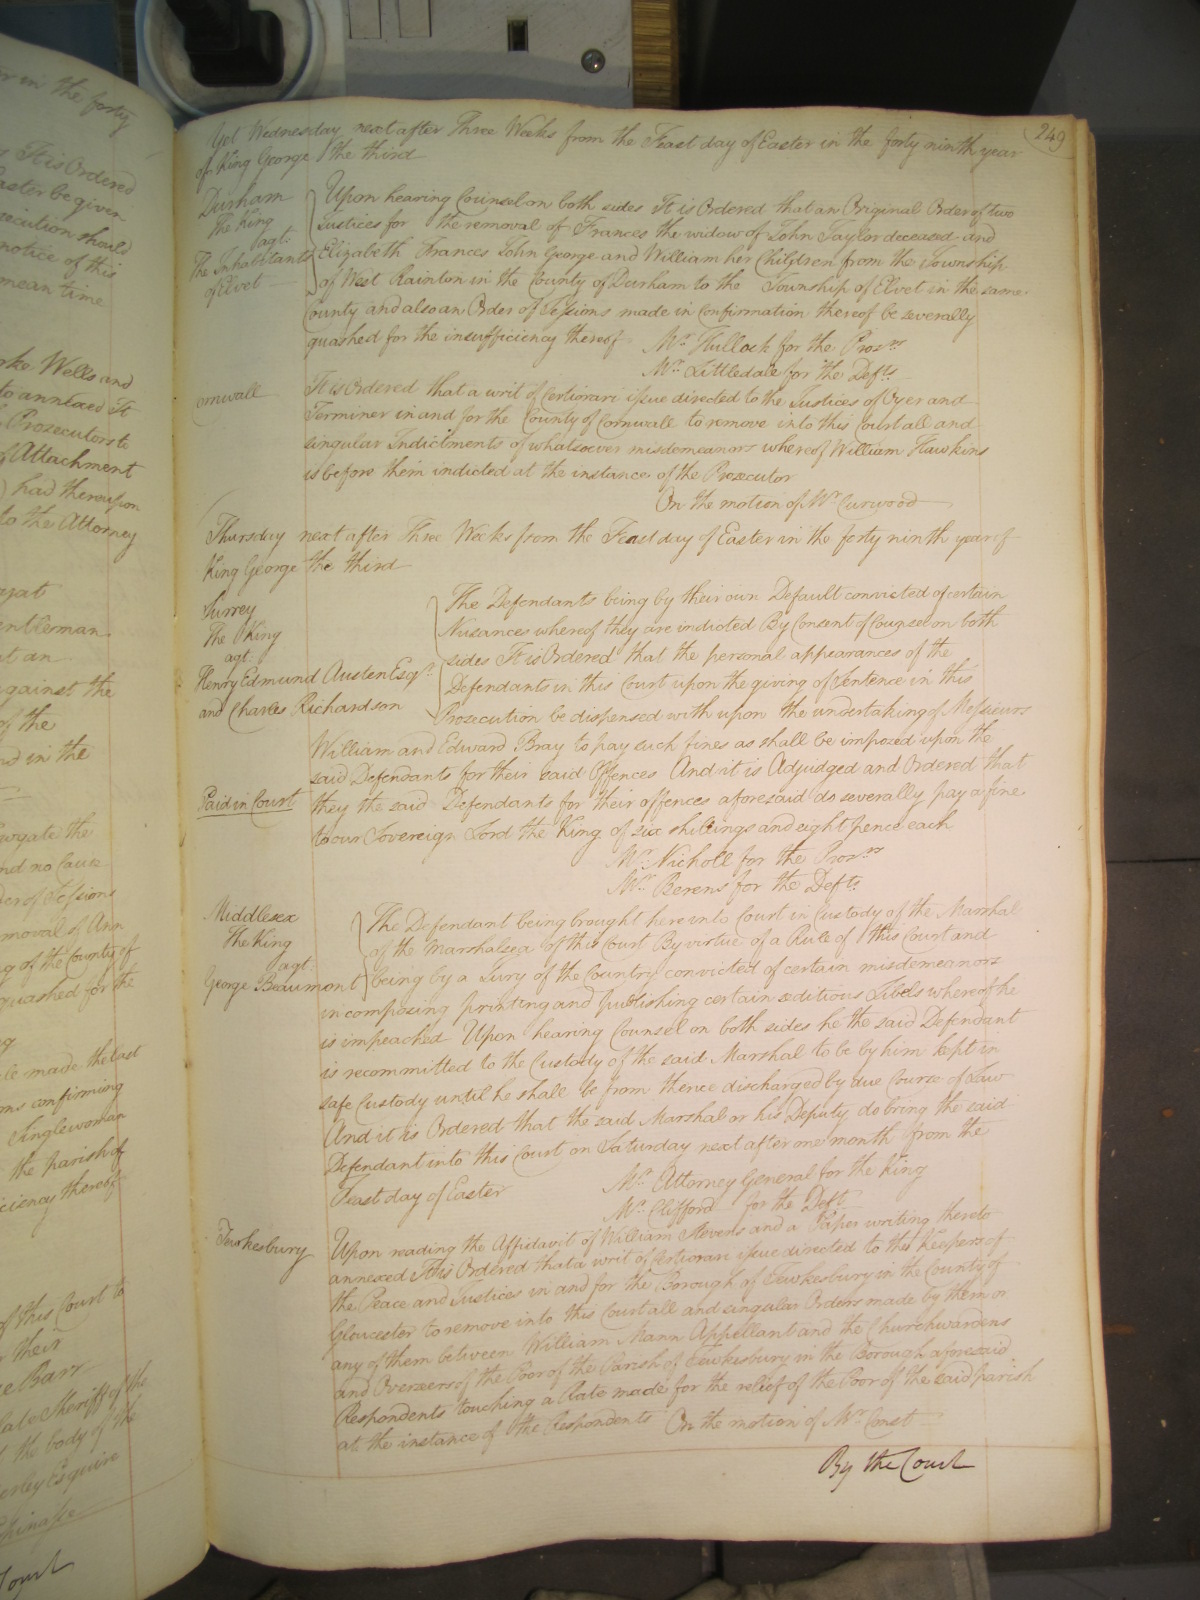 er in the forty
It is Ordered
aster be given
xecution should
notice of this
mean time
orke Wells and
to annexed It
Prosecutors to
of Attachment
had thereupon
to the Attorney
entleman
at an
against the
of the
nd in the
Newgate the
nd no Cause
der of Sessions
moval of Ann
g of the County of
quashed for the
be made the last
ms confirming
Singlewoman
the parish of
iciency thereof
of this Court to
their
Barr
late Sheriff of the
the body of the
erley Esquire
Court
249
Yet Wednesday next after Three Weeks from the Feast day of Easter in the forty ninth year
of King George the third
Durham
The King
agt.
The Inhabitants
of Elvet
Upon hearing Counsel on both sides It is Ordered that an Original Order of two
Justices for the removal of Frances the widow of John Taylor deceased and
Elizabeth Frances John George and William her Children from the Township
of West Rainton in the County of Durham to the Township of Elvet in the same
County and also an Order of Sessions made in Confirmation thereof be severally
quashed for the insufficiency thereof
Mr. Hullock for the Prosrs
Mr. Littledale for the Defts
ornwall
It is Ordered that a writ of Certiorari issue directed to the Justices of Oyer and
Terminer in and for the County of Cornwall to remove into this Court all and
singular Indictments of whatsoever misdemeanors whereof William Hawkins
is before them indicted at the instance of the Prosecutor
On the motion of Mr Curwood
Thursday next after Three Weeks from the Feast day of Easter in the forty ninth year of
King George the third
Surrey
The King
agt.
Henry Edmund Austen Esqr.
and Charles Richardson
The Defendants being by their own Default convicted of certain
Nusances whereof they are indicted By Consent of Counsel on both
sides It is Ordered that the personal appearances of the
Defendants in this Court upon the giving of Sentence in this
Prosecution be dispensed with upon the undertaking of Messieurs
William and Edward Bray to pay such fines as shall be imposed upon the
said Defendants for their said Offences And it is Adjudged and Ordered that
Paid in Court
they the said Defendants for their offences aforesaid do severally pay a fine
to our Sovereign Lord the King of six shillings and eight pence each
Mr. Nicholl for the Prosrs
Mr. Berens for the Defts
Middlesex
The King
agt.
George Beaumont
The Defendant being brought here into Court in Custody of the Marshal
of the Marshalsea of this Court By virtue of a Rule of this Court and
being by a Jury of the Country convicted of certain misdemeanors
in composing printing and publishing certain seditious Libels whereof he
is impeached Upon hearing Counsel on both sides he the said Defendant
is recommitted to the Custody of the said Marshal to be by him kept in
safe Custody until he shall be from thence discharged by due Course of Law
And it is Ordered that the said Marshal or his Deputy do bring the said
Defendant into this Court on Saturday next after one month from the
Feast day of Easter
Mr. Attorney General for the King
Mr. Clifford for the Deft.
Tewkesbury
Upon reading the Affidavit of William Stevens and a Paper writing thereto
annexed It is Ordered that a writ of Certiorari issue directed to the Keepers of
the Peace and Justices in and for the Borough of Tewkesbury in the County of
Gloucester to remove into this Court all and singular Orders made by them or
any of them between William Mann Appellant and the Churchwardens
and Overseers of the Poor of the Parish of Tewkesbury in the Borough aforesaid
Respondents touching a Rate made for the relief of the Poor of the said parish
at the instance of the Respondents On the motion of Mr Const
By the Court